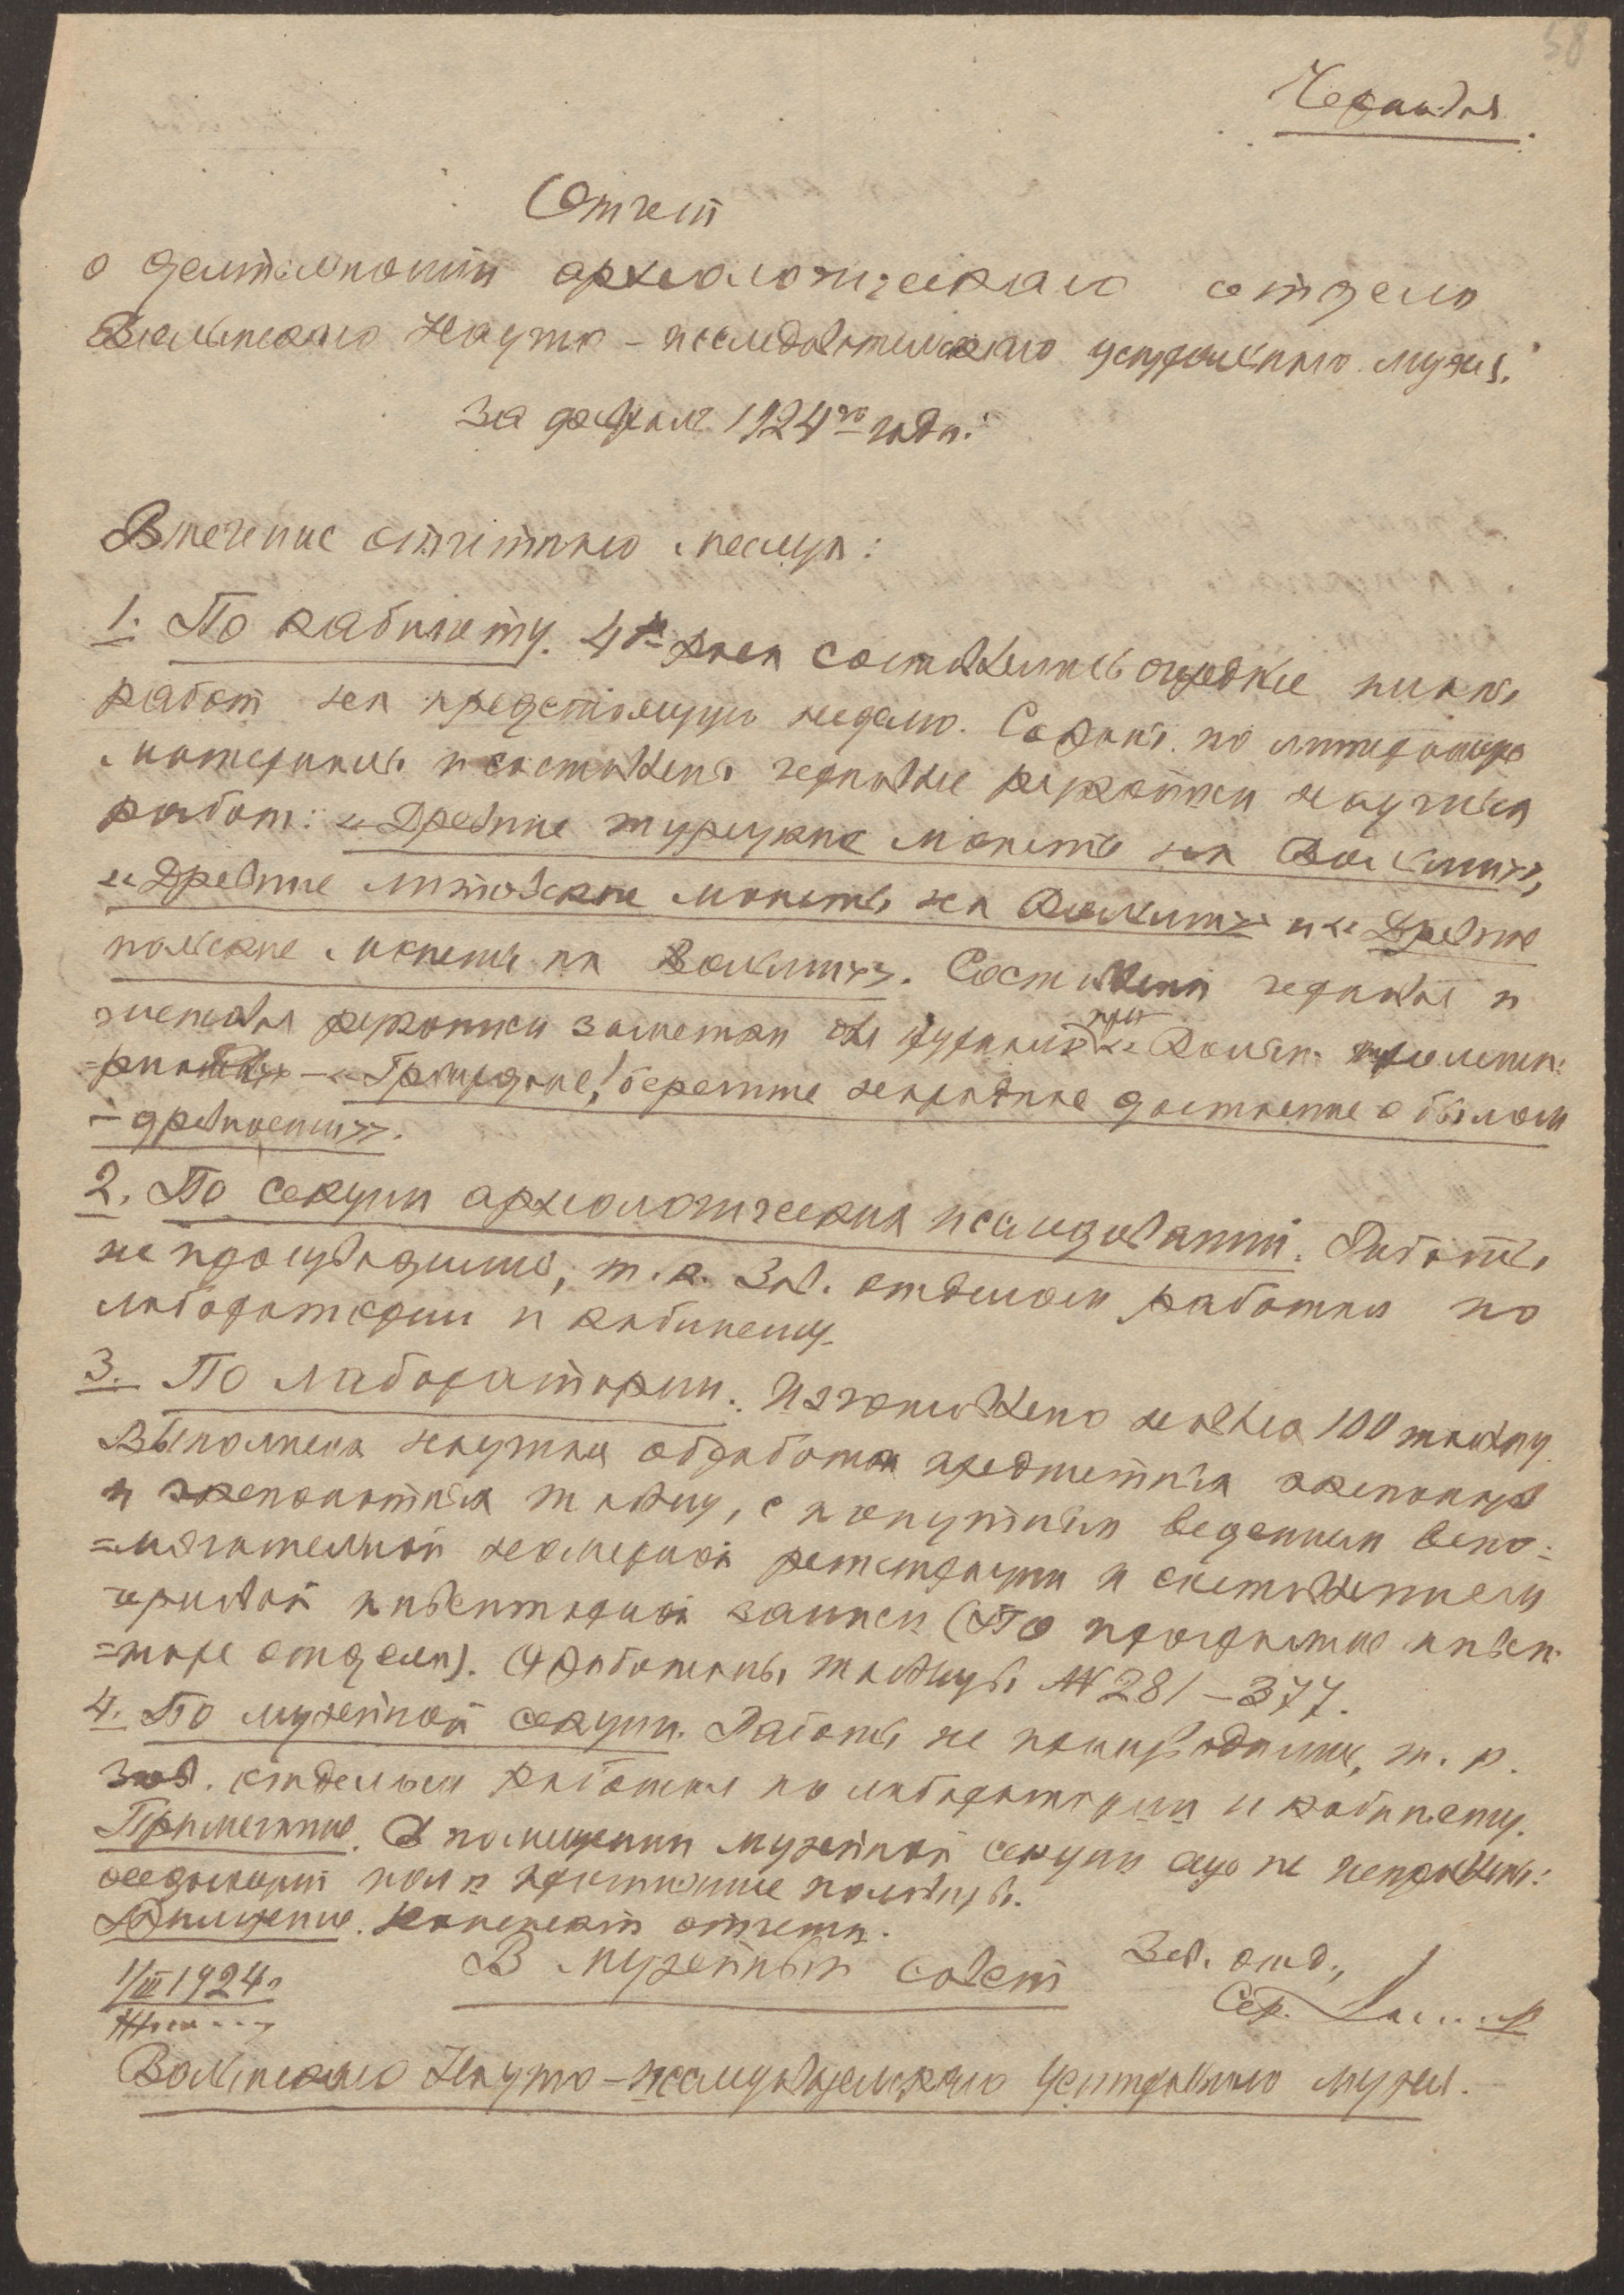 58
Черновая.
Отчет
о деятельности археологического отдела
Волынского Научно-исследовательского центрального музея.
за февраль 1924го года.
В течение отчетного месяца:
1. По кабинету. 4 раза составлялись очередные планы
работ на предстоящую неделю. Собраны по литературе
материалы и составлены черновые рукописи научных
работ: «Древние турецкие монеты на Волыни»,
«Древние литовские монеты на Волыни» и «Древние
польские монеты на Волыни». Составлена черновая и
чистовая рукописи заметки для журнала «Волын.
- «Граждане, берегите народное достояние о былом
- древности».
2. По секции археологических исследований. Работы
не производились, т. к. Зав. отделом работал по
лаборатории и кабинету.
3. По лаборатории. Изготовлено 100 таблиц.
Выполнена научная обработка предметных
и экспонатных таблиц, с попутным ведением вспо-
=могательной номерной регистрации и составлением
черновой инвентарной записи (По программе инвен-
=таре отдела). Обработаны таблицы №281-377.
4. По музейной секции. Работы не производились, т. к.
Зав. отделом работал по лаборатории и кабинету.
Примечание. В помещении музейной секции еще не исправлены:
пол и
отчета.
1/III 1924 г.
В музейный совет
Зав. отд.,
Сер.
Волынского Научно-исследовательского Центрального музея.